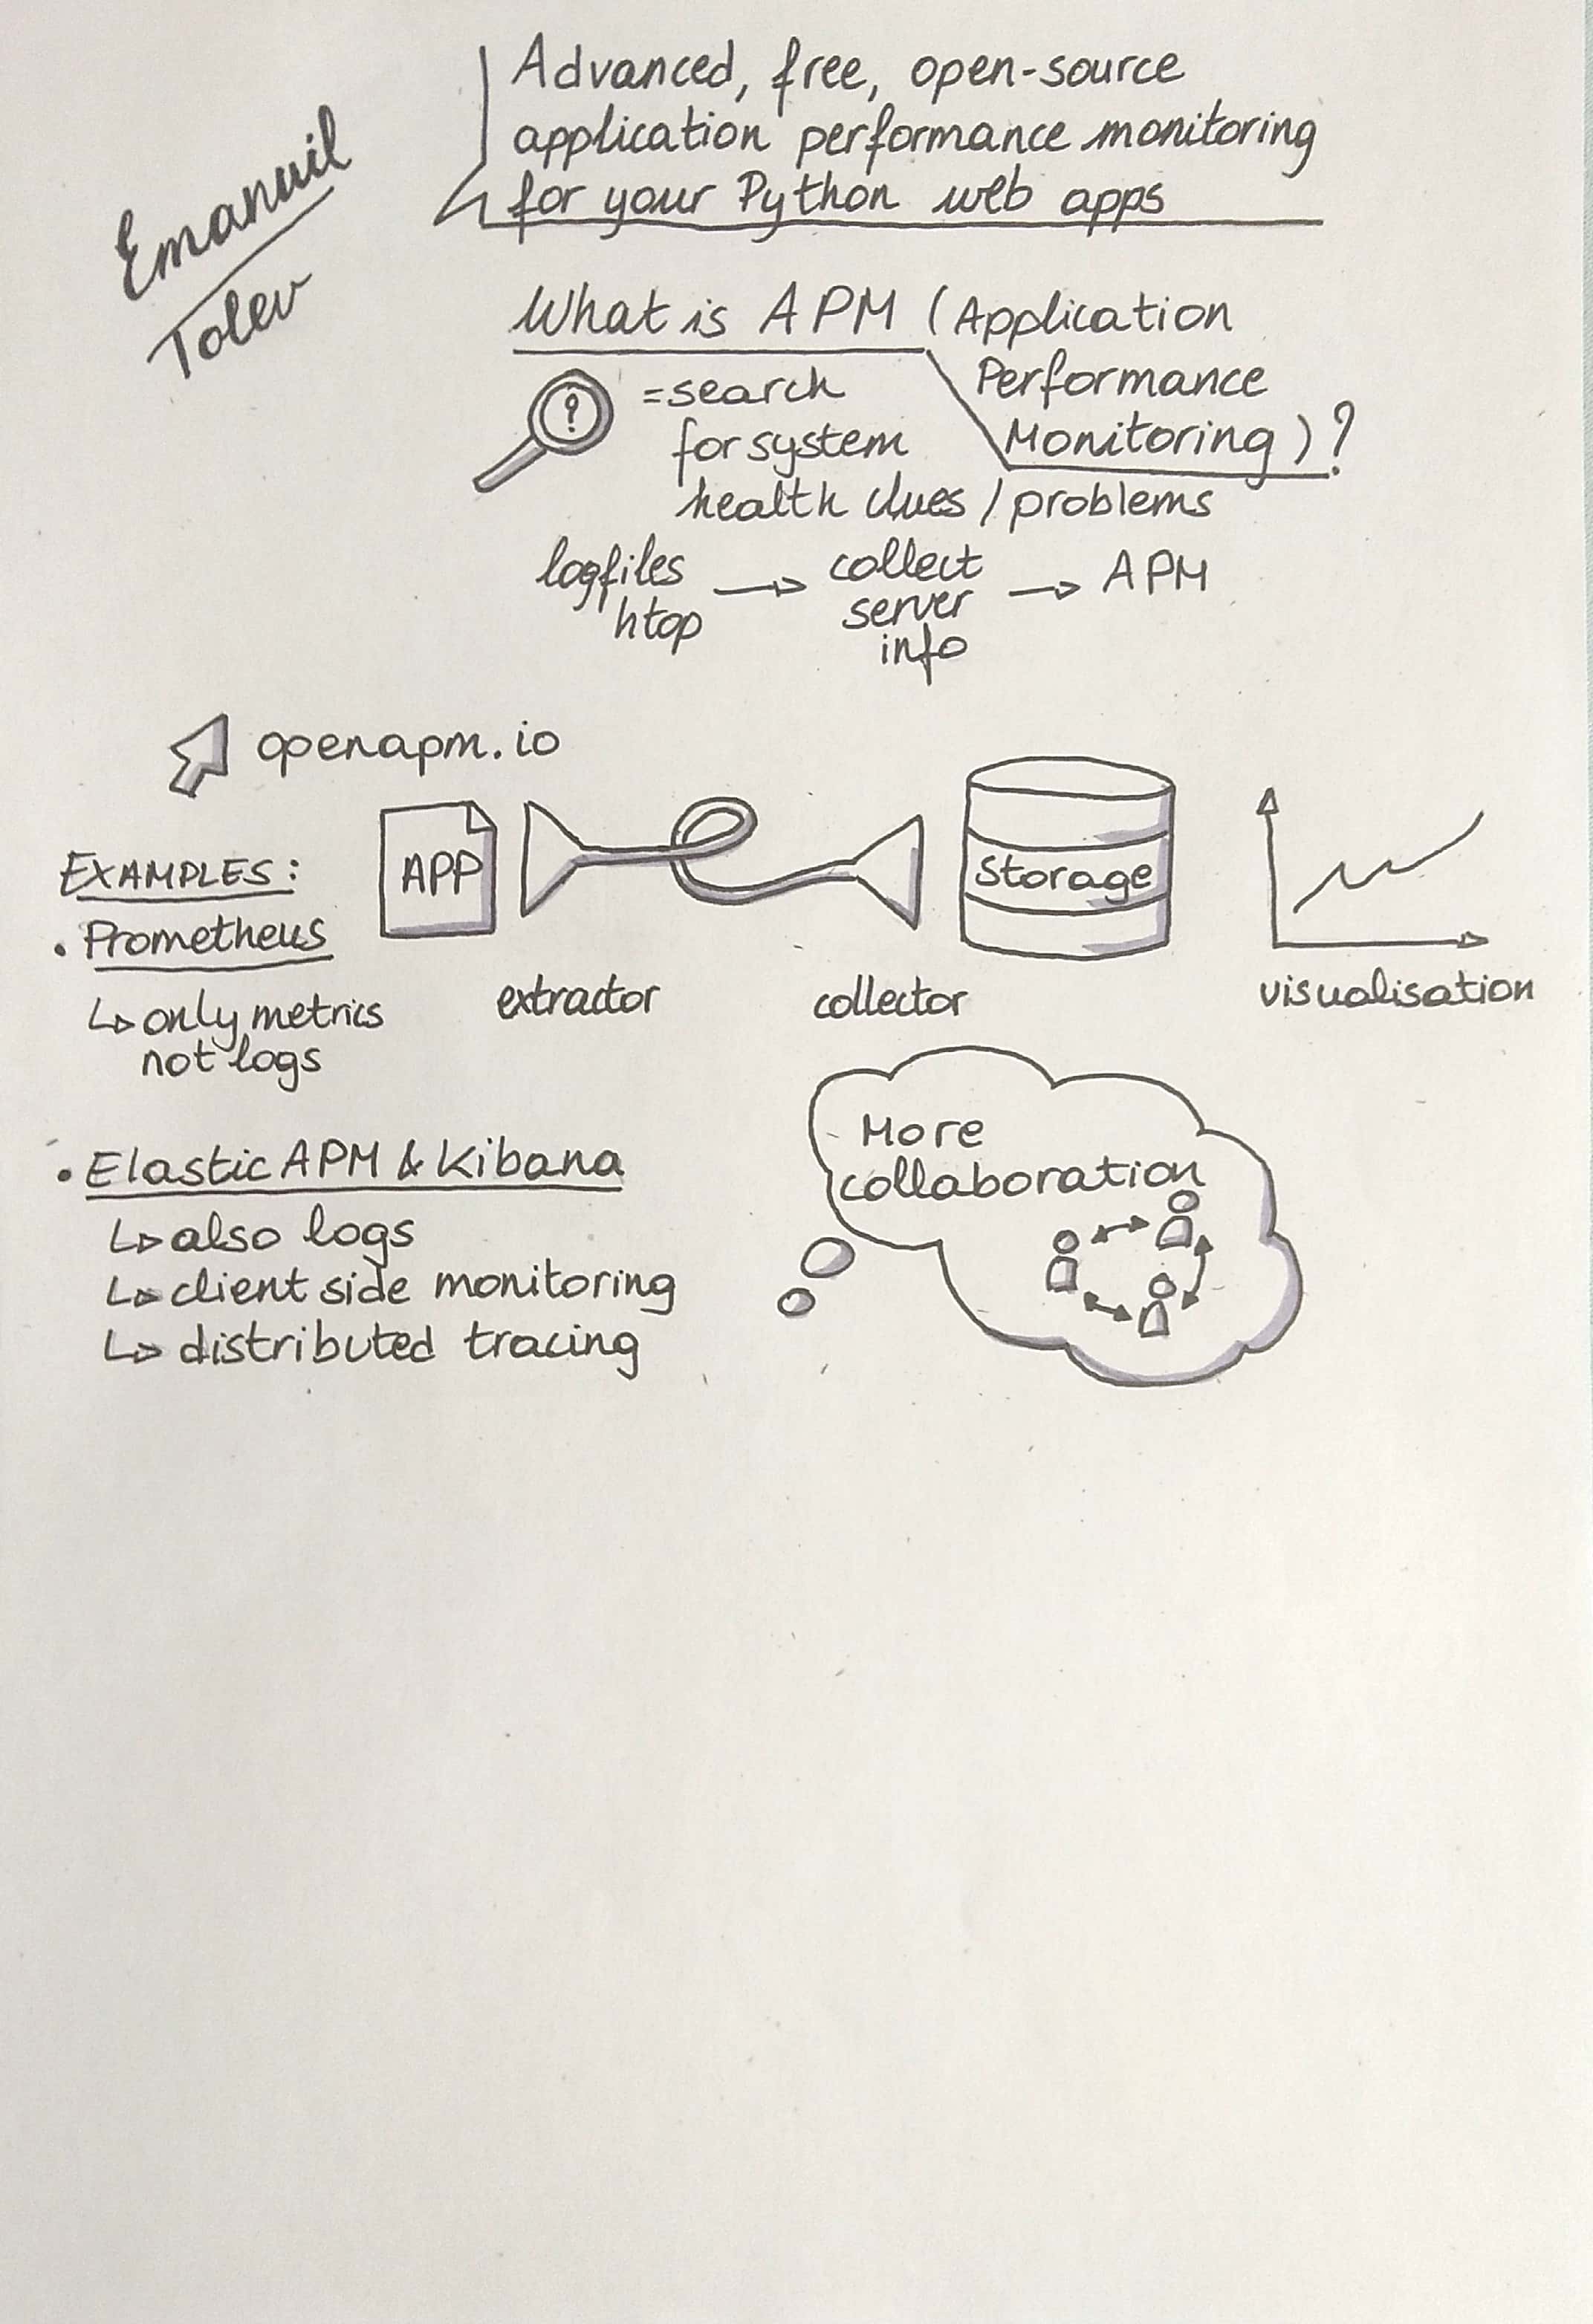 Emanuil
Tolev
Advanced, free, open-source
application performance monitoring
for your Python web apps
What is APM (Application
Performance
Monitoring)?
?
=search
for system
health clues / problems
logfiles
htop
collect
server
info
APM
openapm.io
APP
Storage
extractor
collector
visualisation
EXAMPLES:
• Prometheus
only metrics
not logs
• Elastic APM & Kibana
also logs
client side monitoring
distributed tracing
More
collaboration